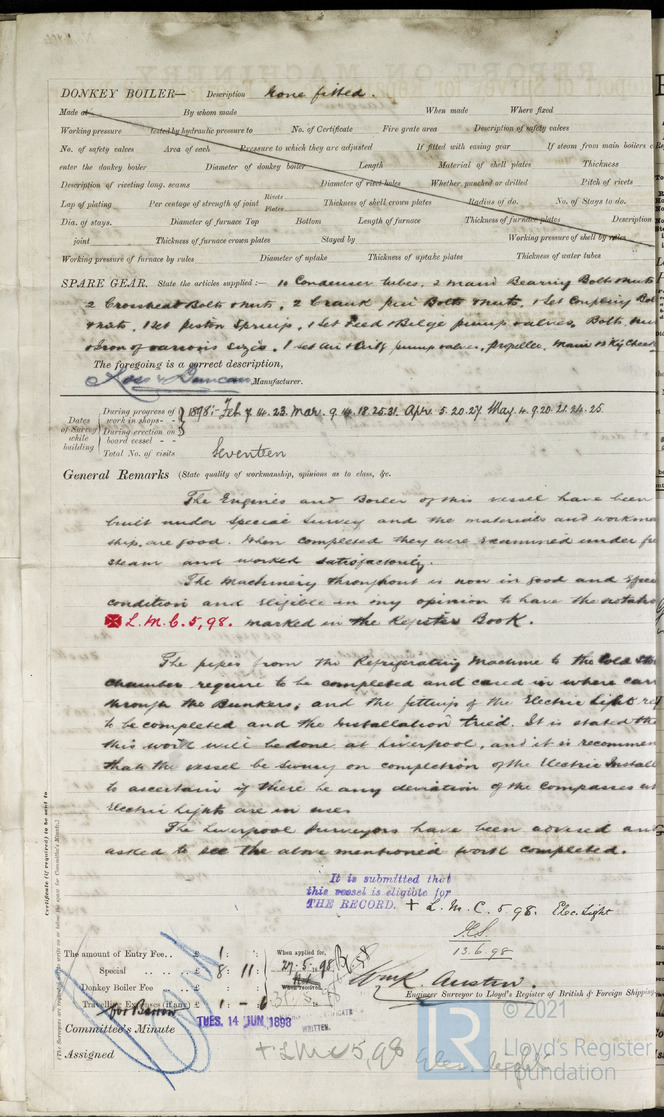 DONKEY BOILER— Description None fitted.
Made at By whom made When made Where fixed
Working pressure tested by hydraulic pressure to No. of Certificate Fire grate area Description of safety valves
No. of safety valves Area of each Pressure to which they are adjusted If fitted with easing gear If steam from main boilers c
enter the donkey boiler Diameter of donkey boiler Length Material of shell plates Thickness
Description of riveting long. seams Diameter of rivet holes Whether punched or drilled Pitch of rivets
Lap of plating Per centage of strength of joint Rivets Plates Thickness of shell crown plates Radius of do. No. of Stays to do.
Dia. of stays. Diameter of furnace Top Bottom Length of furnace Thickness of furnace plates Description
joint Thickness of furnace crown plates Stayed by Working pressure of shell by rules
Working pressure of furnace by rules Diameter of uptake Thickness of uptake plates Thickness of water tubes
SPARE GEAR. State the articles supplied:— 10 Condenser tubes, 2 main Bearing Bolts & nuts
2 Crosshead Bolts & nuts, 2 Crank pin Bolts & nuts, 1 Set Coupling Bol
& nuts, 1 set piston Springs, 1 Set Feed & Bilge pump valves, Bolts, nu
& Iron of various sizes, 1 set Air & Circ pump valves, propeller, Main &
The foregoing is a correct description,
Ross & Duncan Manufacturer.
Dates of Survey while building
During progress of work in shops - - 1898:- Feb 7. 14. 23. Mar. 9. 14. 18. 25. 31. Apr. 5. 20. 27. May. 4. 9. 20. 21. 24. 25.
During erection on board vessel - -
Total No. of visits Seventeen
General Remarks (State quality of workmanship, opinions as to class, &c.
The Engines and Boiler of this vessel have been
built under Special Survey and the materials and workma
ship are good. When completed they were examined under
steam and worked satisfactorily.
The Machinery throughout is now in good and
condition and eligible in my opinion to have the notatio
✠ L.M.C. 5, 98. marked in the Register Book.
The pipes from the Refrigerating Machine to the Cold
chamber require to be completed and cased in where
through the Bunkers; and the fitting of the Electric Light
to be completed and the Installation tried. It is stated tha
this work will be done at Liverpool, and it is recommen
that the vessel be swung on completion of the Electric Install
to ascertain if there be any deviation of the Compasses
Electric Lights are in use.
The Liverpool Surveyors have been advised and
asked to see the above mentioned work completed.
It is submitted that
this vessel is eligible for
THE RECORD. + L.M.C. 5 98. Elec. Light
13.6.98
The amount of Entry Fee . . £ 1 : :
Special . . . . £ 8 : 11 :
Donkey Boiler Fee . . . £ : :
Travelling Expenses (if any) £ 1 - 6
When applied for,
27.5.98
When received,
Wm R. Austin.
Engineer Surveyor to Lloyd's Register of British & Foreign Shipping
Committee's Minute
TUES. 14 JUN 1898
WRITTEN.
Assigned + LMC 5,98 Elec. light
Certificate (if required) to be sent to
© 2021
Lloyd's Register
Foundation